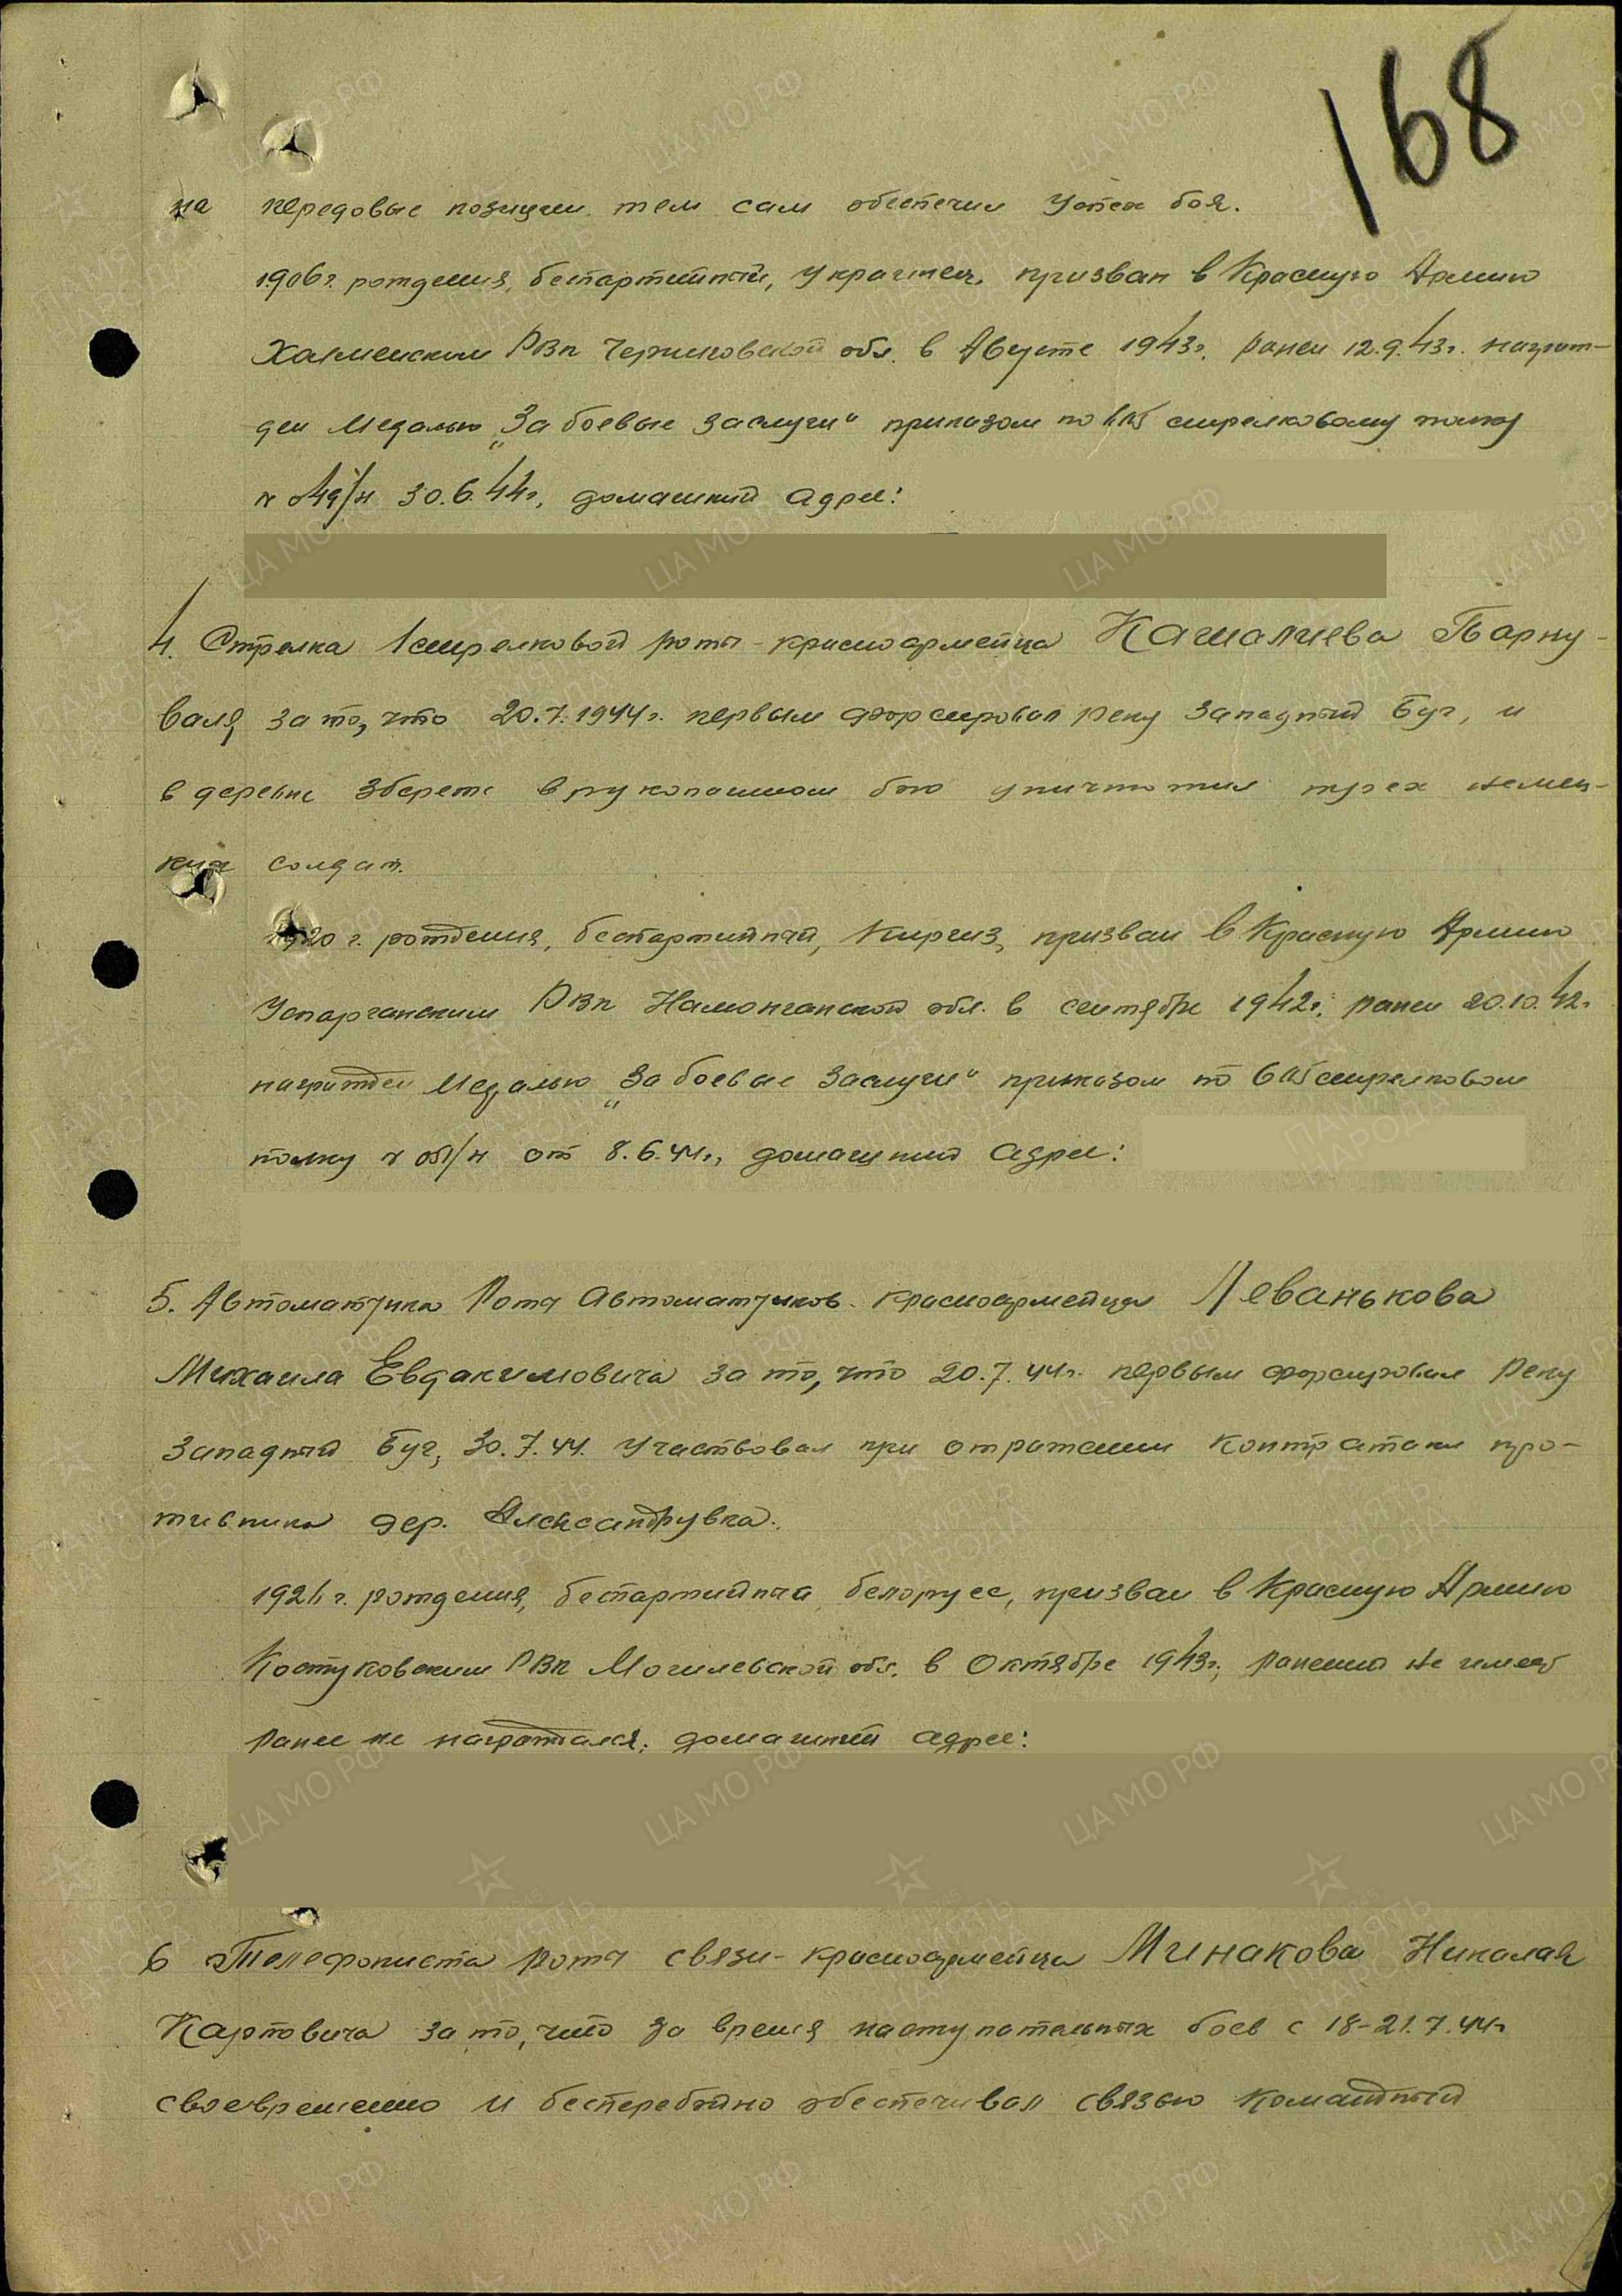 168
на передовые позиции тем сам обеспечил успех боя.
1906 г. рождения, беспартийный, украинец, призван в Красную Армию
РВК Черниговской обл. в Августе 1943г. ранен 12.9.43г. награж-
ден медалью „За боевые заслуги“ приказом по стрелковому полку
30.6.44г., домашний адрес:
4. Стрелка 1 стрелковой роты - красноармейца Кашалиева Парну-
валя за то, что 20.7.1944г. первым форсировал реку Западный Буг, и
в деревне Збереже в рукопашном бою уничтожил трех немец-
ких солдат.
1920 г. рождения, беспартийный, Киргиз, призван в Красную Армию
РВК Наманганской обл. в сентябре 1942г. ранен 20.10.42г.
награжден медалью „За боевые заслуги“ приказом по стрелковом
полку от 8.6.44г., домашний адрес:
5. Автоматчика Роты автоматчиков - красноармейца Леванькова
Михаила Евдакимовича за то, что 20.7.44г. первым форсировал реку
Западный Буг, 30.7.44. участвовал при отражении контратаки про-
тивника дер. Александрувка.
г. рождения, беспартийный, белорусс, призван в Красную Армию
Костуковским РВК Могилевской обл. в Октябре 1943г., ранений не имеет
ранее не награждался, домашний адрес:
6 Телефониста роты связи - красноармейца Минакова Николая
Карповича за то, что за время наступательных боев с 18-21.7.44г
своевременно и бесперебойно обеспечивал связью командный
ЦА МО РФ
ПАМЯТЬ НАРОДА